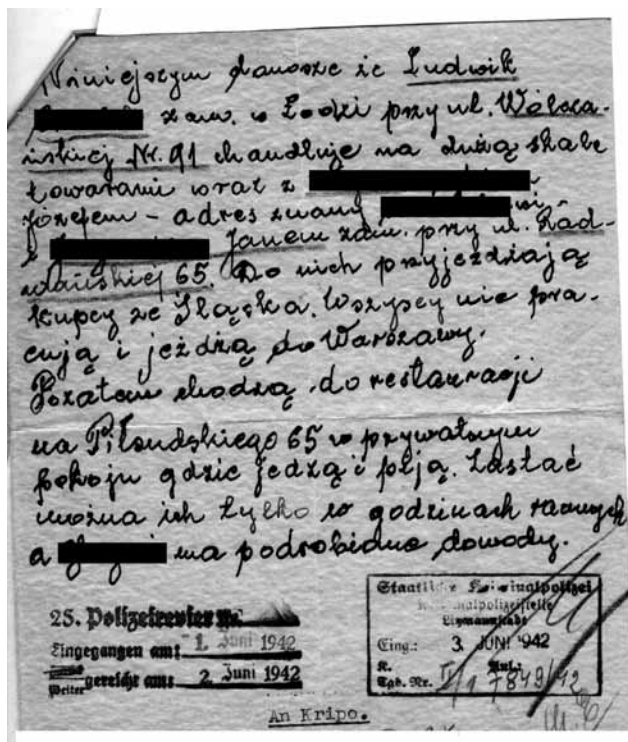 Niniejszym donoszę że Ludwik
zam. w Łodzi przy ul. Wólcza-
ińskiej Nr. 91 chandluje na dużą skalę
towarami wraz z
Józefem – adres znany
z Janem zam. przy ul. Rad-
wańskiej 65. Do nich przyjeżdżają
kupcy ze Śląska. Wszyscy nie pra-
cują i jeżdżą do Warszawy.
Pozatem chodzą do restauracji
na Piłsudskiego 65 w prywatnym
pokoju gdzie jedzą i piją. Zastać
można ich tylko w godzinach rannych
a ma podrobione dowody.
25. Polizeirevier
Eingegangen am: 1. Juni 1942
Weiter gereicht am: 2. Juni 1942
Staatliche Kriminalpolizei
Kriminalpolizeistelle
Litzmannstadt
Eing.: 3. JUNI 1942
K. Anl.:
Tgb. Nr. II/1 7849/42
An Kripo.